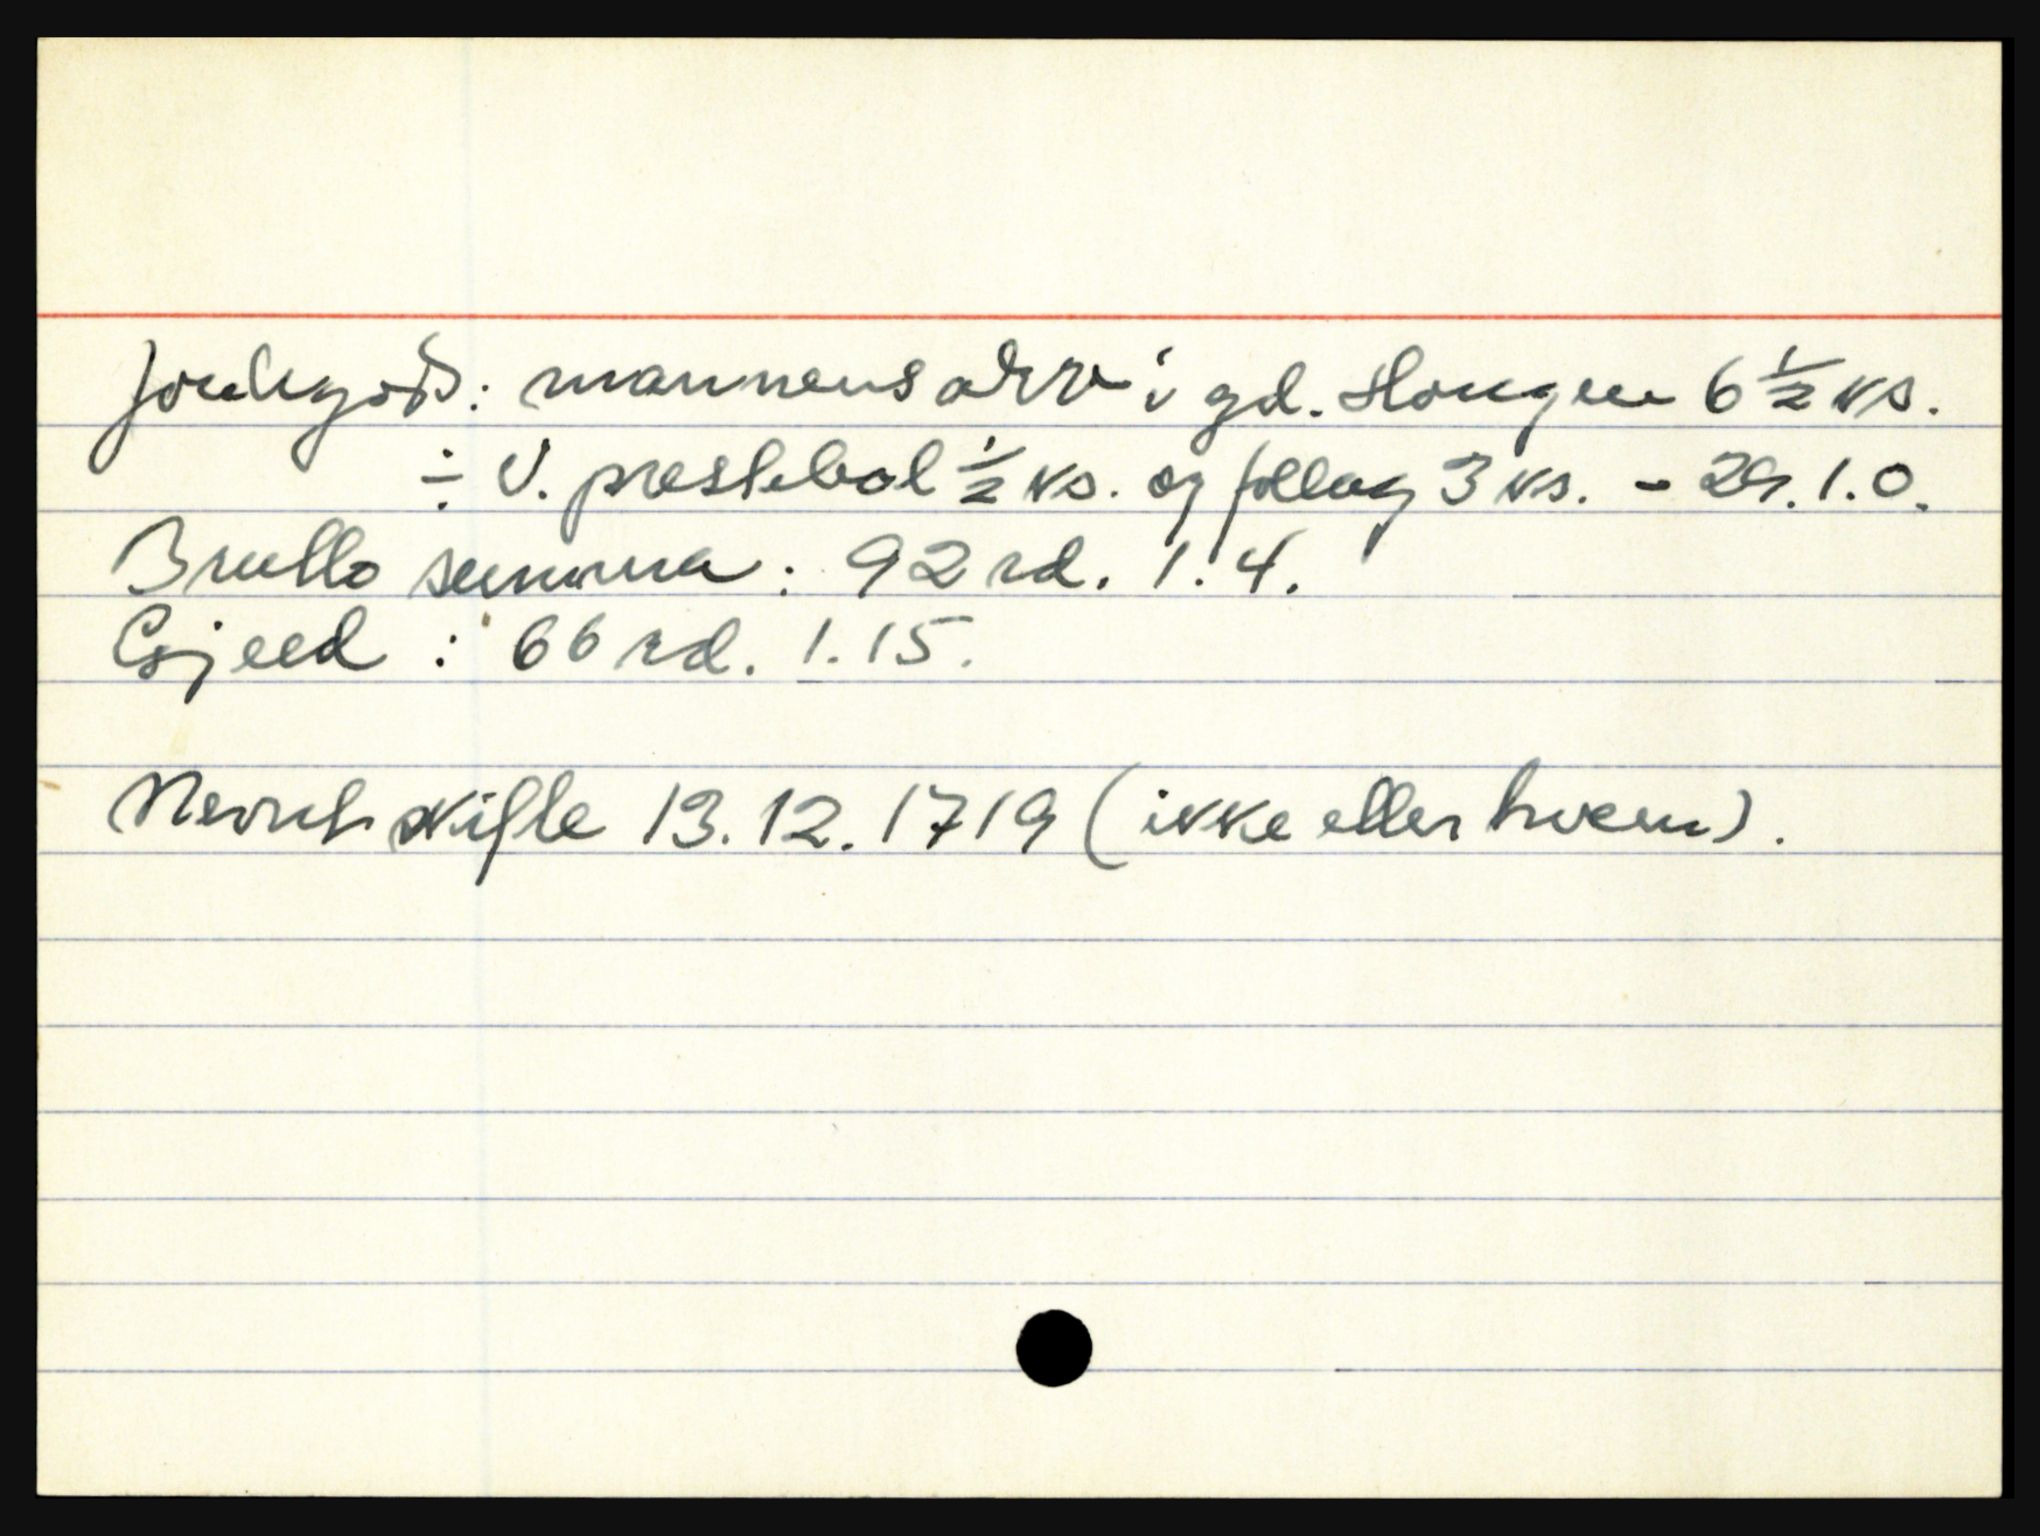 Jordegods: mannens arv i gd. Haugen 6 ½ ks.
÷ V. prestebol ½ ks. og följ 3 ks. - 29. 1. 0.
Brutto summa: 92 rd. 1. 4.
Gjeld : 66 rd. 1. 15.
Nevnt skifte 13. 12. 1719 (ikke etter hvem).